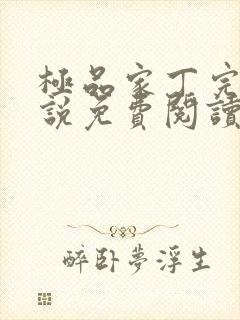 極品家丁完
說免費閱讀
醉卧夢浮生